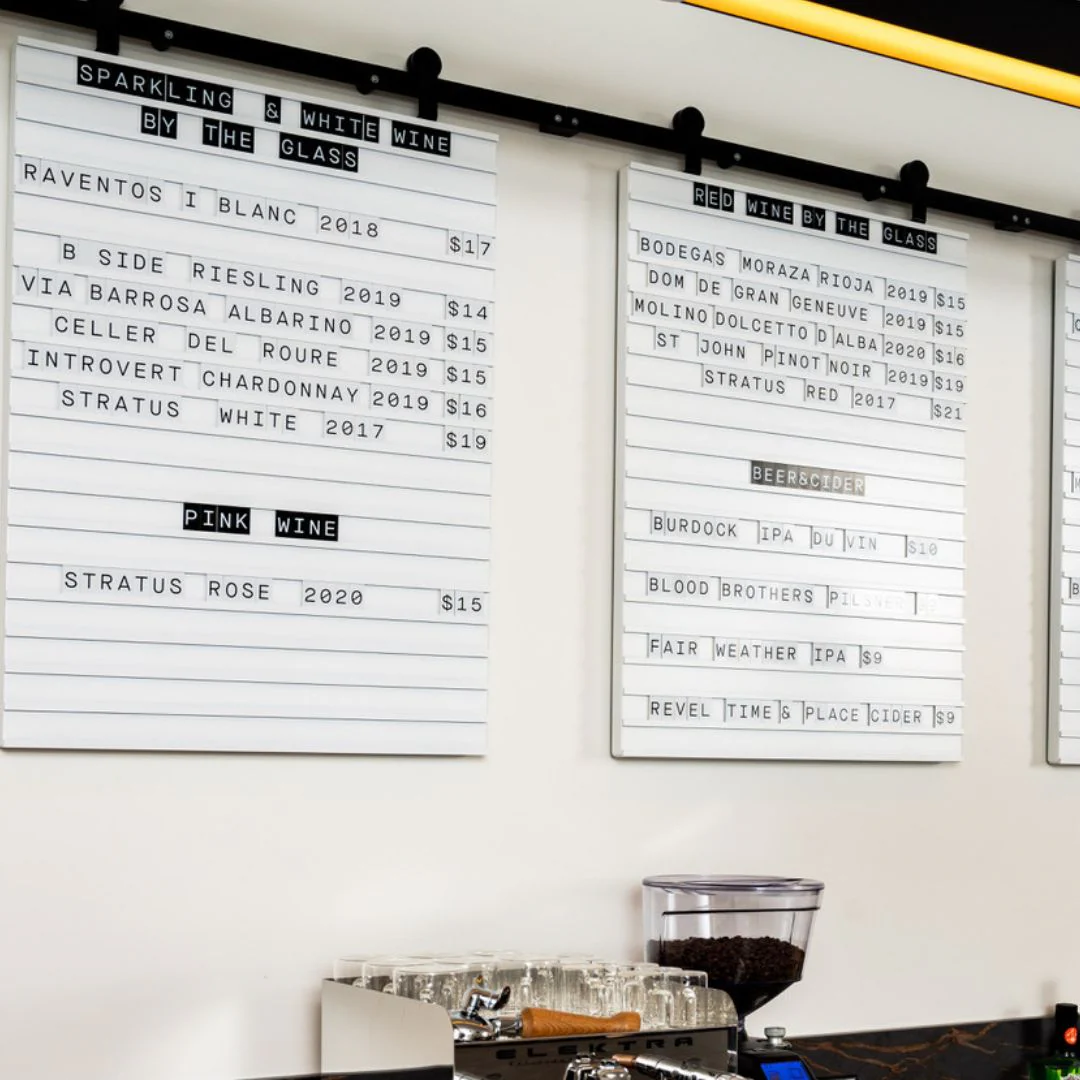 SPARKLING & WHITE WINE
BY THE GLASS
RAVENTOS I BLANC 2018 $17
B SIDE RIESLING 2019 $14
VIA BARROSA ALBARINO 2019 $15
CELLER DEL ROURE 2019 $15
INTROVERT CHARDONNAY 2019 $16
STRATUS WHITE 2017 $19
PINK WINE
STRATUS ROSE 2020 $15
RED WINE BY THE GLASS
BODEGAS MORAZA RIOJA 2019 $15
DOM DE GRAN GENEUVE 2019 $15
MOLINO DOLCETTO D ALBA 2020 $16
ST JOHN PINOT NOIR 2019 $19
STRATUS RED 2017 $21
BEER&CIDER
BURDOCK IPA DU VIN $10
BLOOD BROTHERS PILSNER
FAIR WEATHER IPA $9
REVEL TIME & PLACE CIDER $9
ELEKTRA